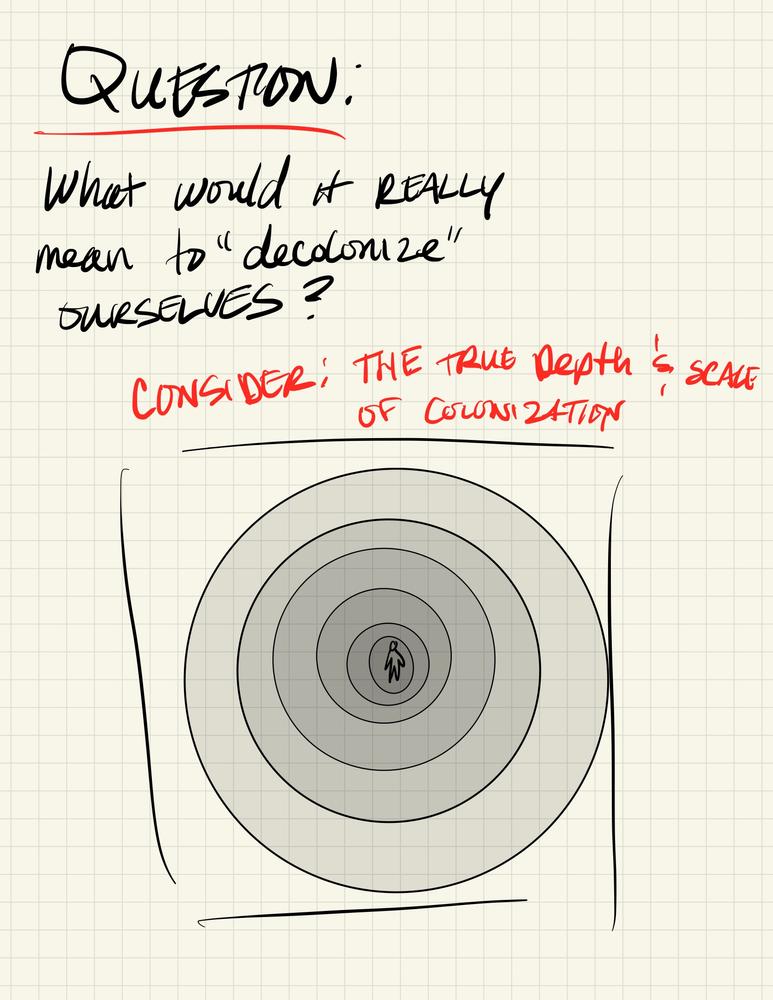 QUESTION:
What would it REALLY
mean to "decolonize"
OURSELVES?
CONSIDER: THE TRUE Depth & SCALE
OF COLONIZATION